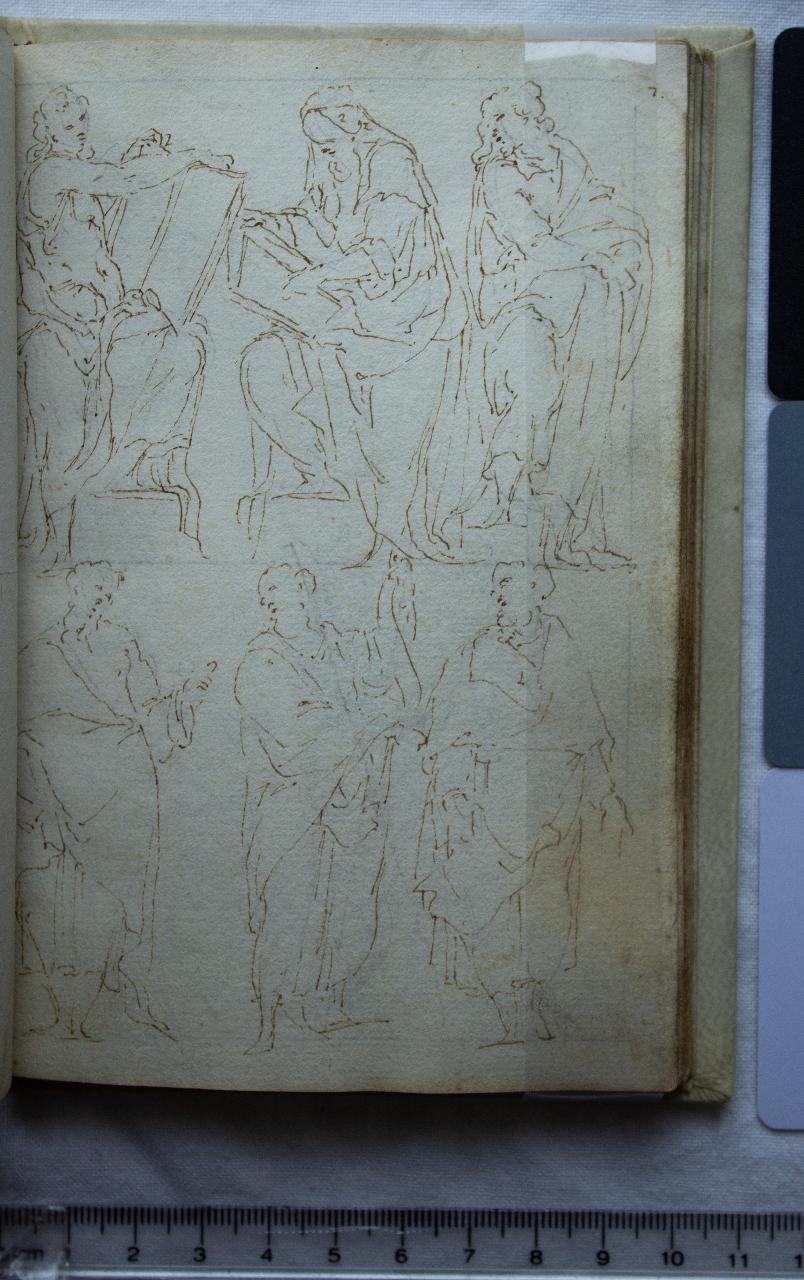 7.
cm 1 2 3 4 5 6 7 8 9 10 11